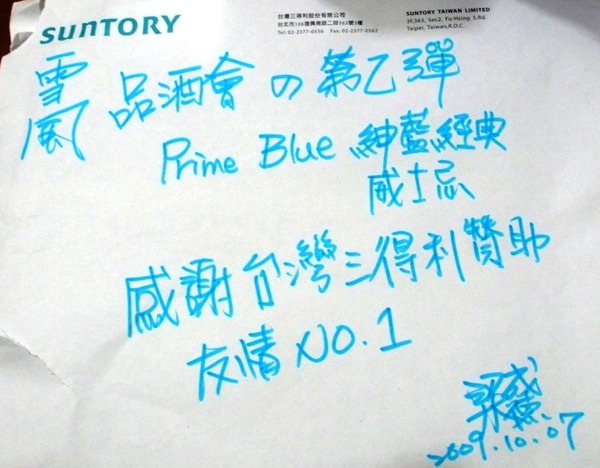 SUNTORY
台灣三得利股份有限公司
台北市106復興南路二段363號3樓
Tel. 02-2377-0556 Fax. 02-2377-0562
SUNTORY TAIWAN LIMITED
3F,363, Sec2, Fu-Hsing S.Rd.
Taipei, Taiwan,R.O.C.
雪風 品酒會の第乙彈
Prime Blue 紳藍經典
威士忌
感謝台灣三得利贊助
友情NO.1
2009.10.07